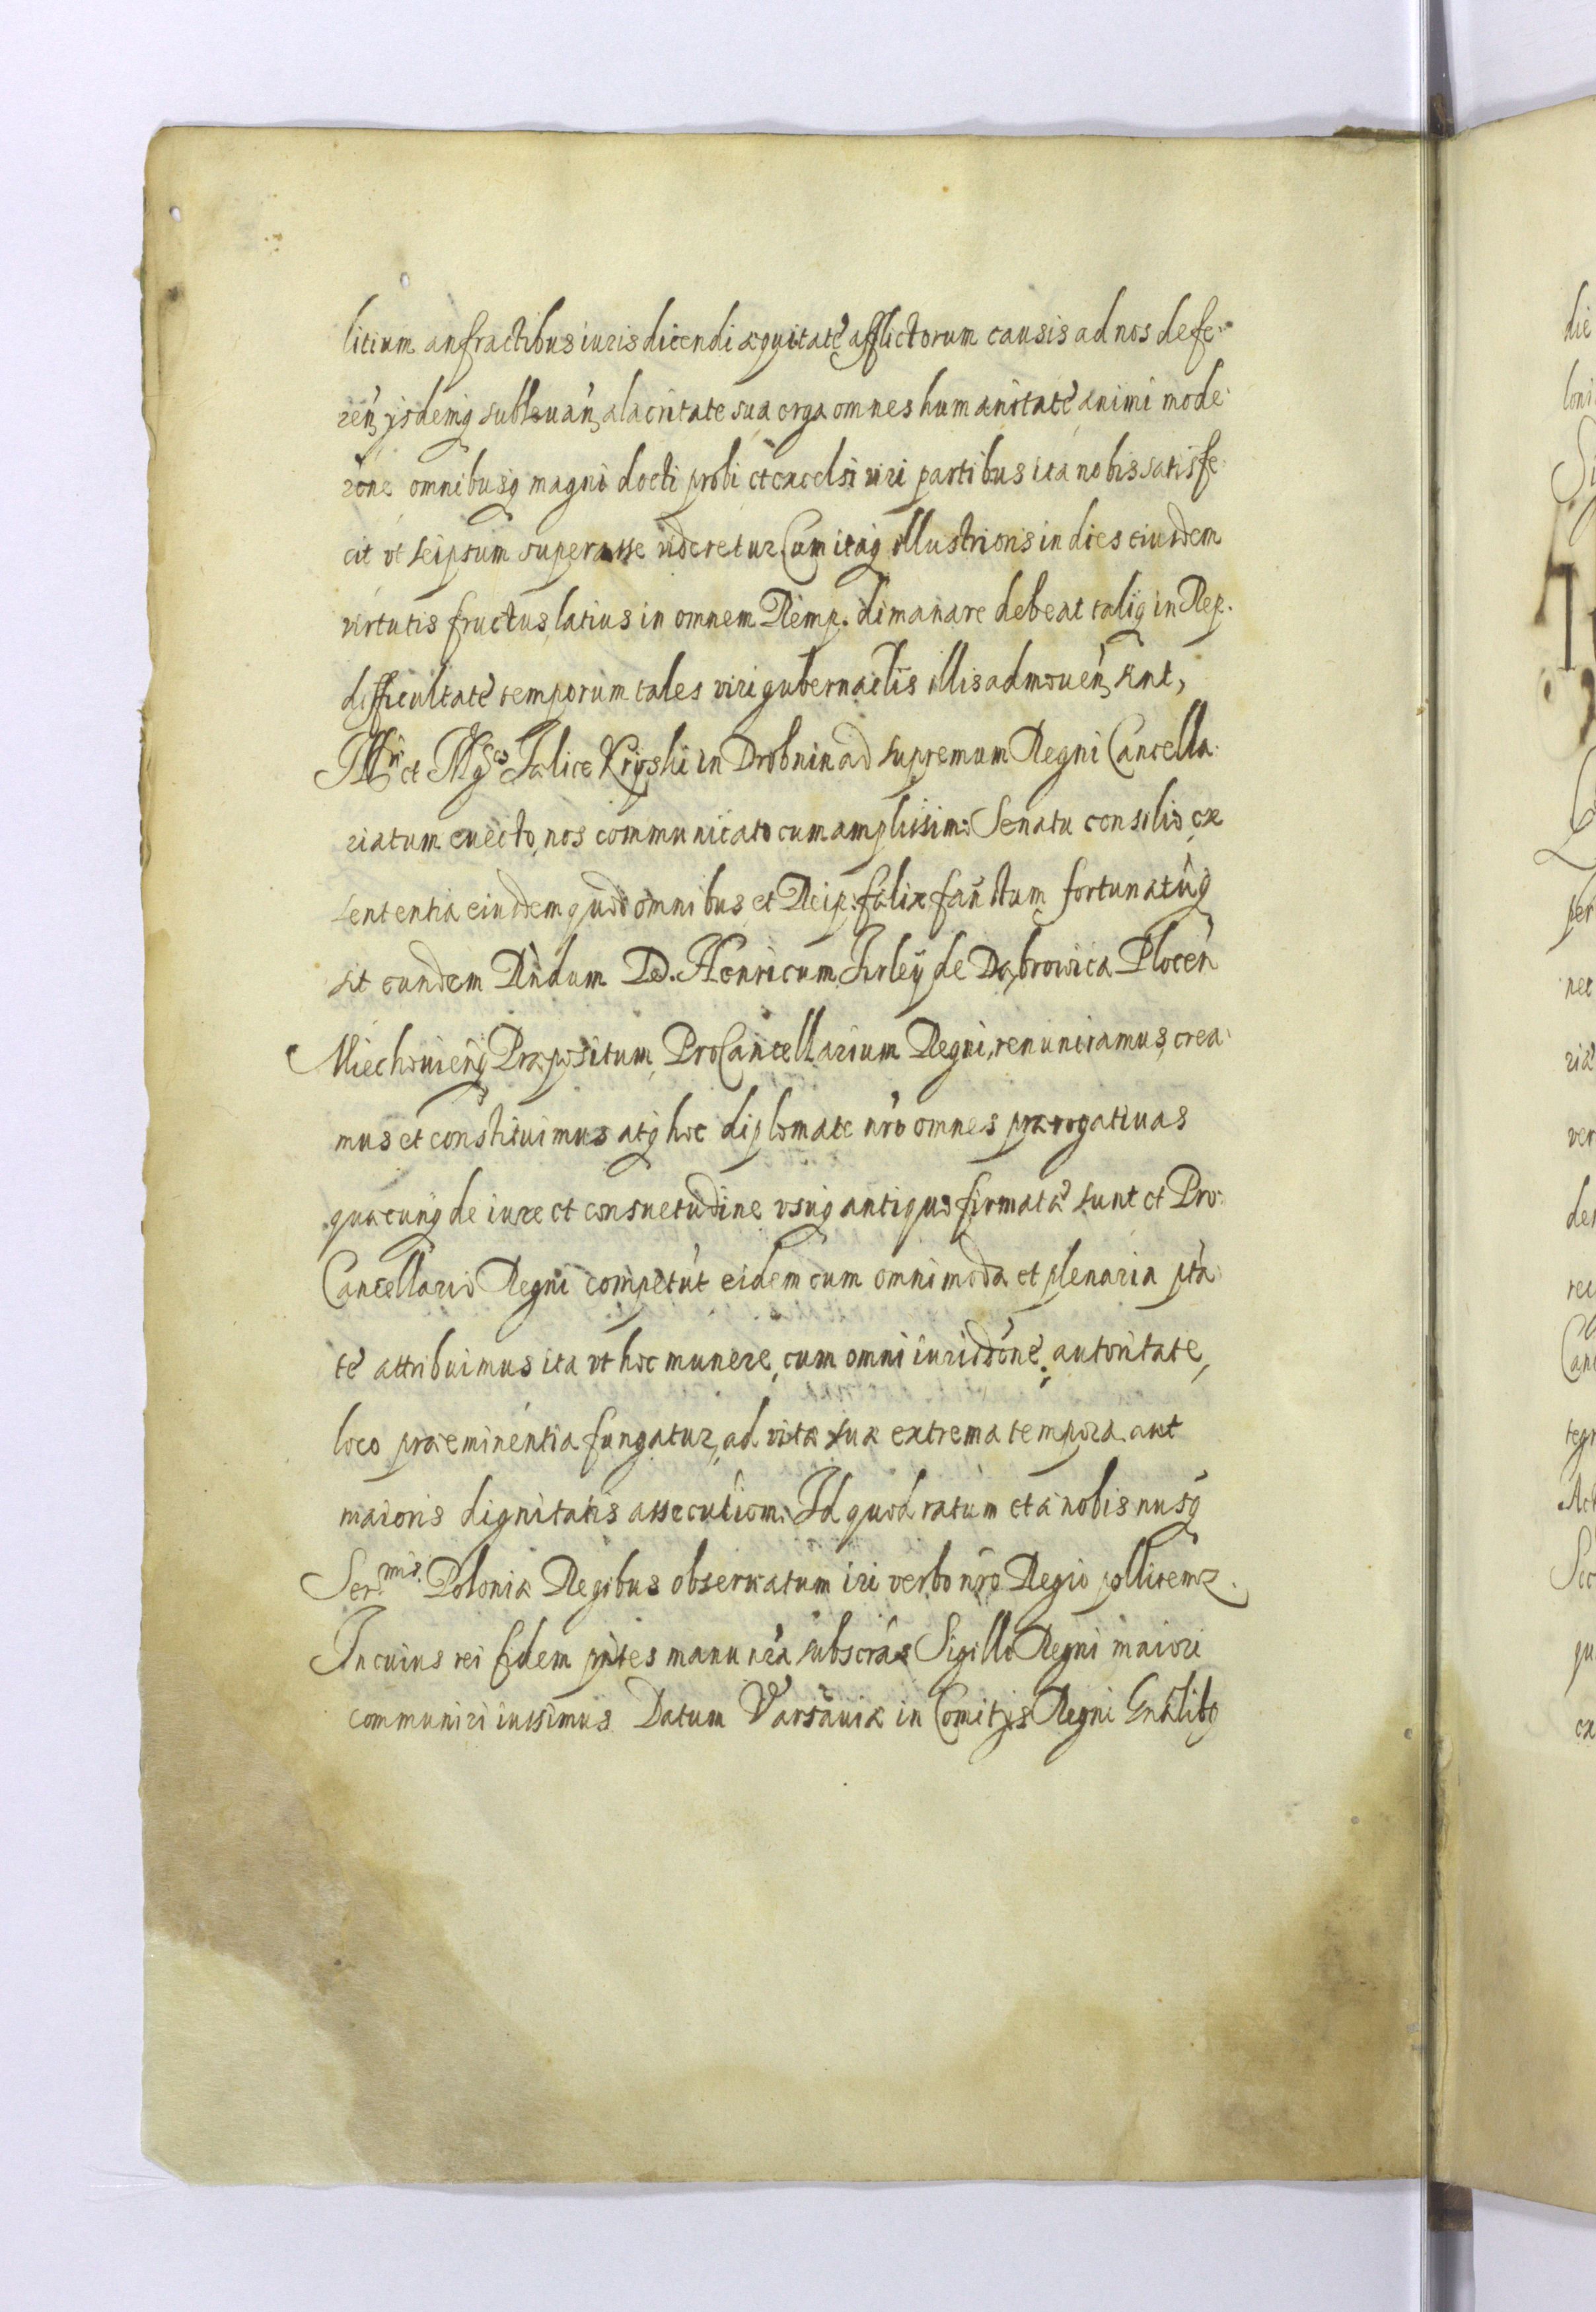 litium anfractibus iuris dicendi æquitatẽ afflictorum causis ad nos defe
reñ, ijsdemq subleuañ, alacritate sua erga omnes humanitatẽ animi mode
rõne omnibusq magni docti probi et excelsi viri partibus ita nobis satisfe
cit vt seipsum superasse videretur. Cum itaq illustrioris in dies eiusdem
virtutis fructus, latius in omnem Remp. dimanare debeat taliq in Rep.
difficultatẽ temporum tales viri gubernaclis illis admoueñ, sint,
Illri et Mgco Fælice Kryski in Drobnin ad supremum Regni Cancella
riatum euecto, nos communicato cum amplissimo Senatu consilio, ex
sententia eiusdem quod omnibus et Reip. fælix faustum fortunatũq
sit eundem Rñdum D. Henricum Firleÿ de Dąbrowica Ploceñ
Miechouieñq Præpositum, ProCancellarium Regni, renunciamus, crea
mus et constituimus atq hoc diplomate nr̃o omnes prærogatiuas
quæcunq de iure et consuetudine vsuq antiquo firmatæ sunt et Pro
Cancellario Regni competũt eidem cum omnimoda et plenaria ptã
tẽ attribuimus ita vt hoc munere, cum omni iurisdõne, autoritate,
loco præeminentia fungatur, ad vitæ suæ extrema tempora aut
maioris dignitatis assecutiom. Id quod ratum et à nobis nrisq
Sermis. Poloniæ Regibus obseruatum iri verbo nr̃o Regio pollicemr.
In cuius rei fidem pñtes manu nr̃a subscrãs Sigillo Regni maiori
communiri iussimus. Datum Varsauiæ in Comitijs Regni Gnãlibq